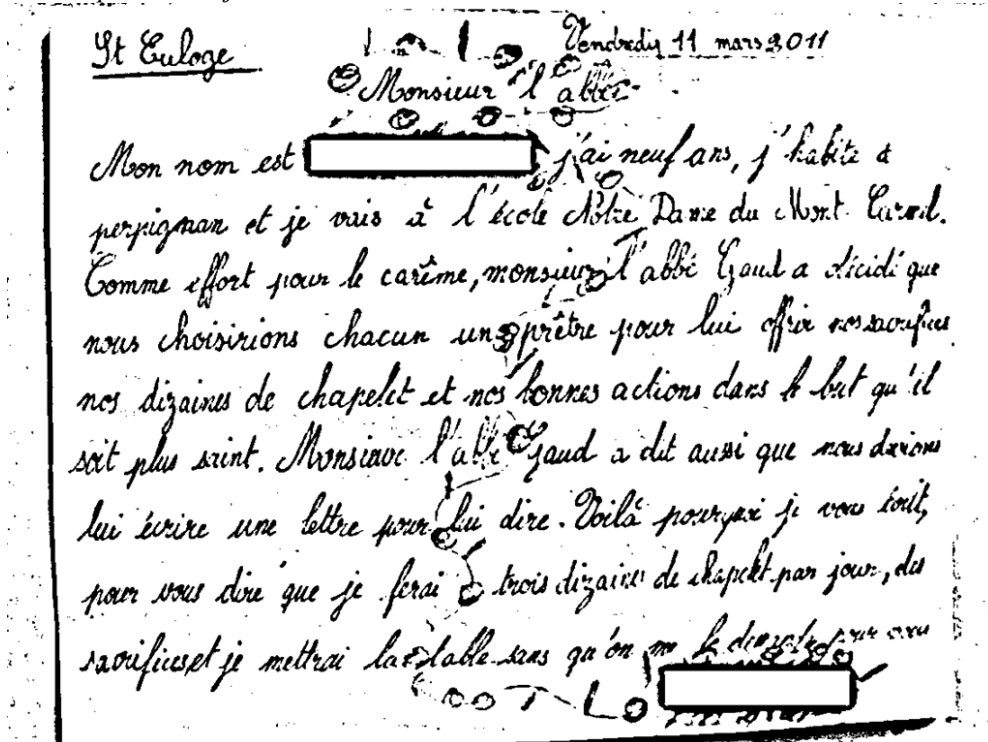 St Euloge
Vendredi 11 mars 2011
Monsieur l'abbé
Mon nom est j'ai neuf ans, j'habite à
perpignan et je vais à l'école Nôtre Dame du Mont Carmel.
Comme effort pour le carême, monsieur l'abbé Gaud a décidé que
nous choisirions chacun un prêtre pour lui offrir nos sacrifices
nos dizaines de chapelet et nos bonnes actions dans le but qu'il
soit plus saint. Monsieur l'abbé Gaud a dit aussi que nous devrions
lui écrire une lettre pour lui dire. Voilà pourquoi je vous écrit,
pour vous dire que je ferai trois dizaines de chapelet par jour, des
sacrifices et je mettrai la table sans qu'on me le demande pour vous